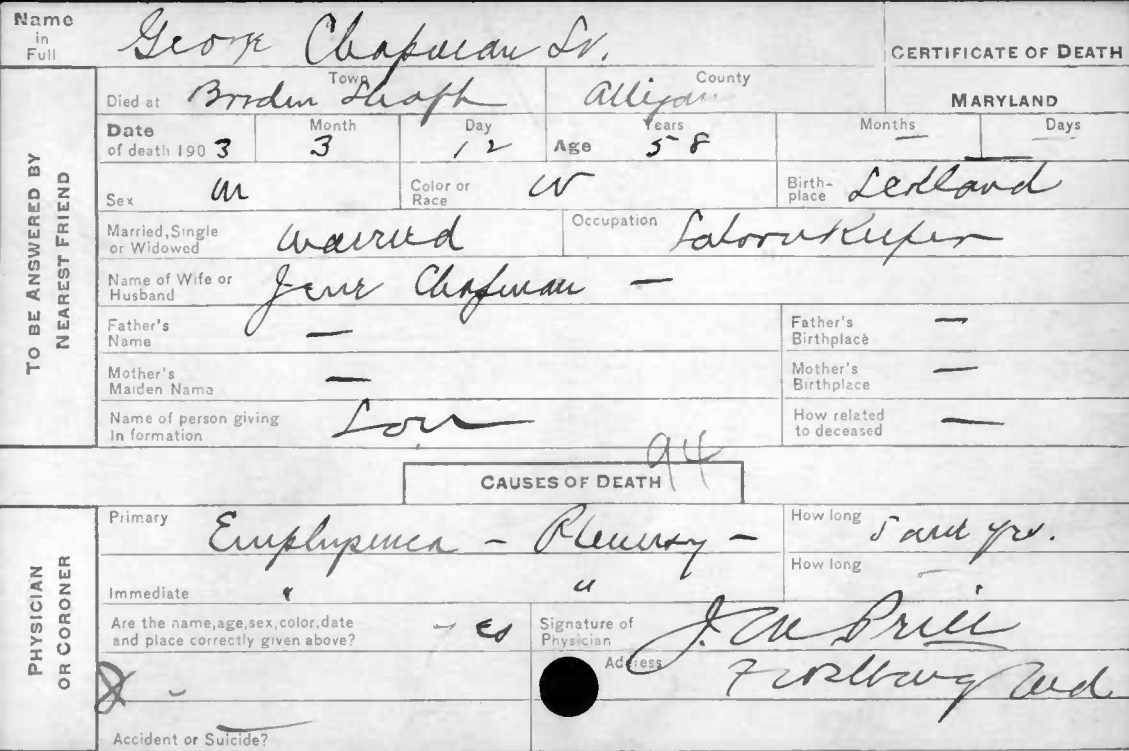 Name in Full George Chapman Sr.
CERTIFICATE OF DEATH
TO BE ANSWERED BY NEAREST FRIEND
Died at Borden Shaft Town Allegany County MARYLAND
Date of death 1903 Month 3 Day 12 Age Years 58 Months — Days —
Sex M Color or Race W Birthplace Scotland
Married, Single or Widowed Married Occupation Saloon Keeper
Name of Wife or Husband Jane Chapman —
Father's Name — Father's Birthplace —
Mother's Maiden Name — Mother's Birthplace —
Name of person giving In formation Son How related to deceased —
94
CAUSES OF DEATH
PHYSICIAN OR CORONER
Primary Emphysema - Pleurisy - How long 5 yrs.
Immediate " " How long
Are the name, age, sex, color, date and place correctly given above? yes Signature of Physician J. M. Price
Address Frostburg Md.
Accident or Suicide? —